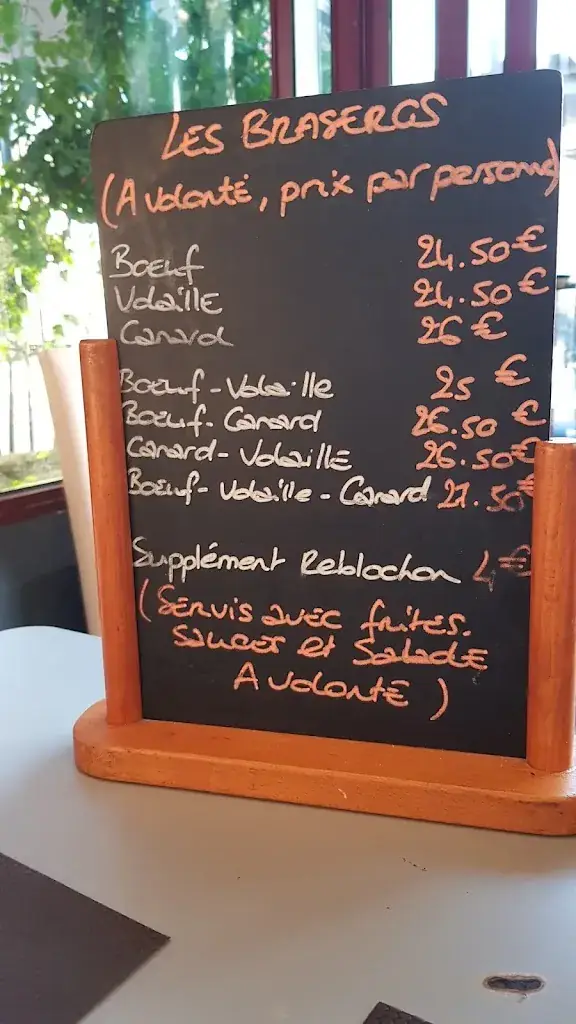 LES BRASEROS
(A volonté, prix par personne)
Boeuf 24.50€
Volaille 24.50€
Canard 26€
Boeuf-Volaille 25€
Boeuf-Canard 26.50€
Canard-Volaille 26.50€
Boeuf-Volaille-Canard 27.50€
Supplément Reblochon 4€
(Servis avec frites.
sauces et Salade
A volonté)